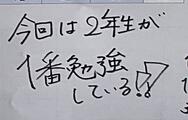 今回は2年生が
1番勉強
している!!